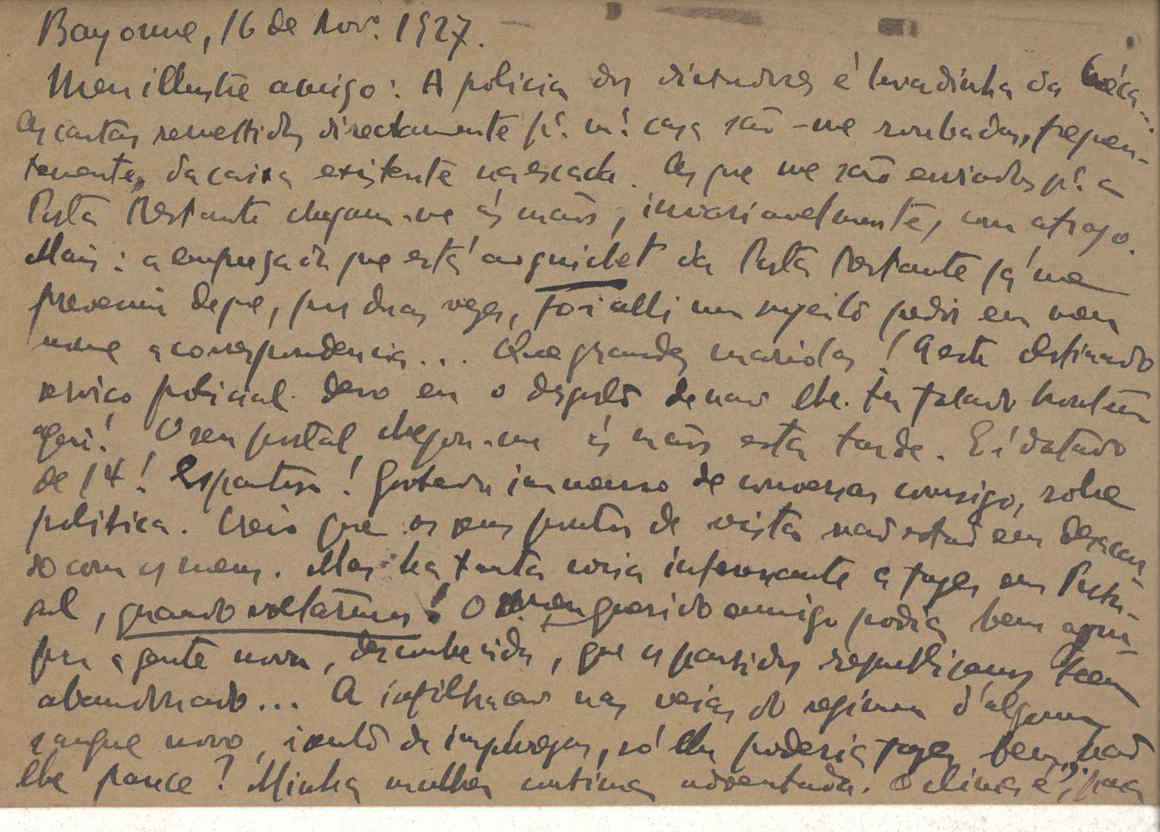 Bayonne, 16 de Nov.º 1927.
Meu illustre amigo: A policia dos dictadores é levadinha da bréca...
As cartas remettidas directamente p.ª m.ª casa são-me roubadas, frequen-
temente, da caixa existente na escada. As que me são enviadas p.ª a
Posta Restante chegam-me ás mãos, invariavelmente, com atrazo.
Mais: a empregada que está ao guichet da Posta Restante já me
preveniu de que, por duas vezes, foi alli um sujeito pedir em meu
nome a correspondencia... Que grandes mariolas! A este
serviço policial devo eu o desgosto de não lhe ter falado hontem
aqui! O seu postal chegou-me ás mãos esta tarde. E é datado
de 14! Gostaria immenso de conversar comsigo, sobre
politica. Creio que os seus pontos de vista não estão em desacor-
do com os meus. Mas ha tanta coisa interessante a fazer em Portu-
gal, quando voltarmos! O meu querido amigo podia bem
a gente nova, desconhecida, que os partidos republicanos teem
abandonado... A infiltração nas veias do regimen d'algum
sangue novo, isento de impurezas, só lhe poderia fazer bem, não
lhe parece? Minha mulher continua adoentada. O clima é, para